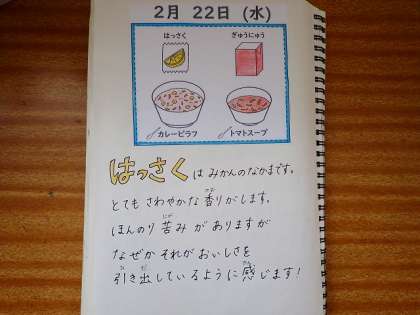 2月 22日 (水)
はっさく
ぎゅうにゅう
カレーピラフ
トマトスープ
はっさく は みかんのなかまです。
とても さわやかな 香りがします。
ほんのり 苦み が ありますが
なぜか それが おいしさを
引き出しているように 感じます!